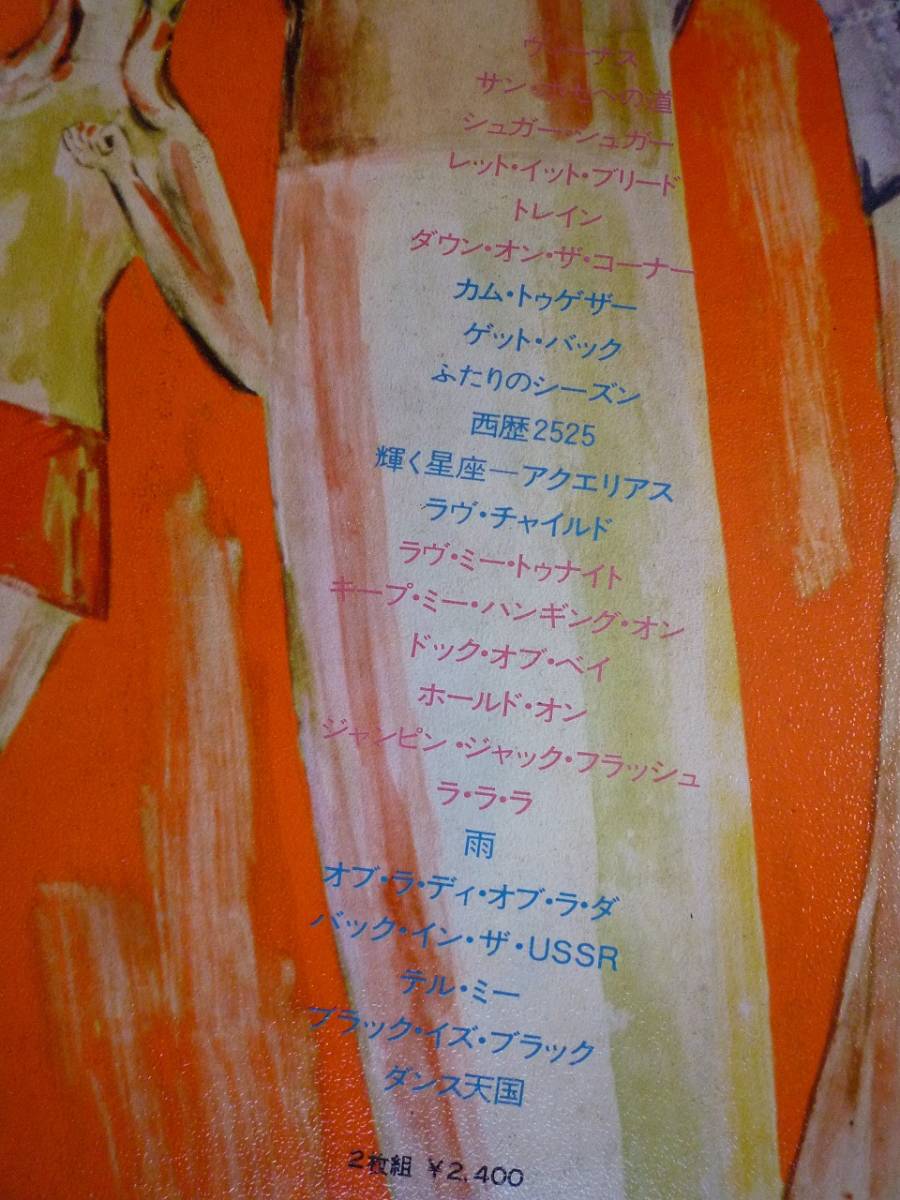 ヴィーナス
サン・ホセへの道
シュガー・シュガー
レット・イット・ブリード
トレイン
ダウン・オン・ザ・コーナー
カム・トゥゲザー
ゲット・バック
ふたりのシーズン
西暦2525
輝く星座―アクエリアス
ラヴ・チャイルド
ラヴ・ミー・トゥナイト
キープ・ミー・ハンギング・オン
ドック・オブ・ベイ
ホールド・オン
ジャンピン・ジャック・フラッシュ
ラ・ラ・ラ
雨
オブ・ラ・ディ・オブ・ラ・ダ
バック・イン・ザ・USSR
テル・ミー
ブラック・イズ・ブラック
ダンス天国
2枚組 ¥2,400